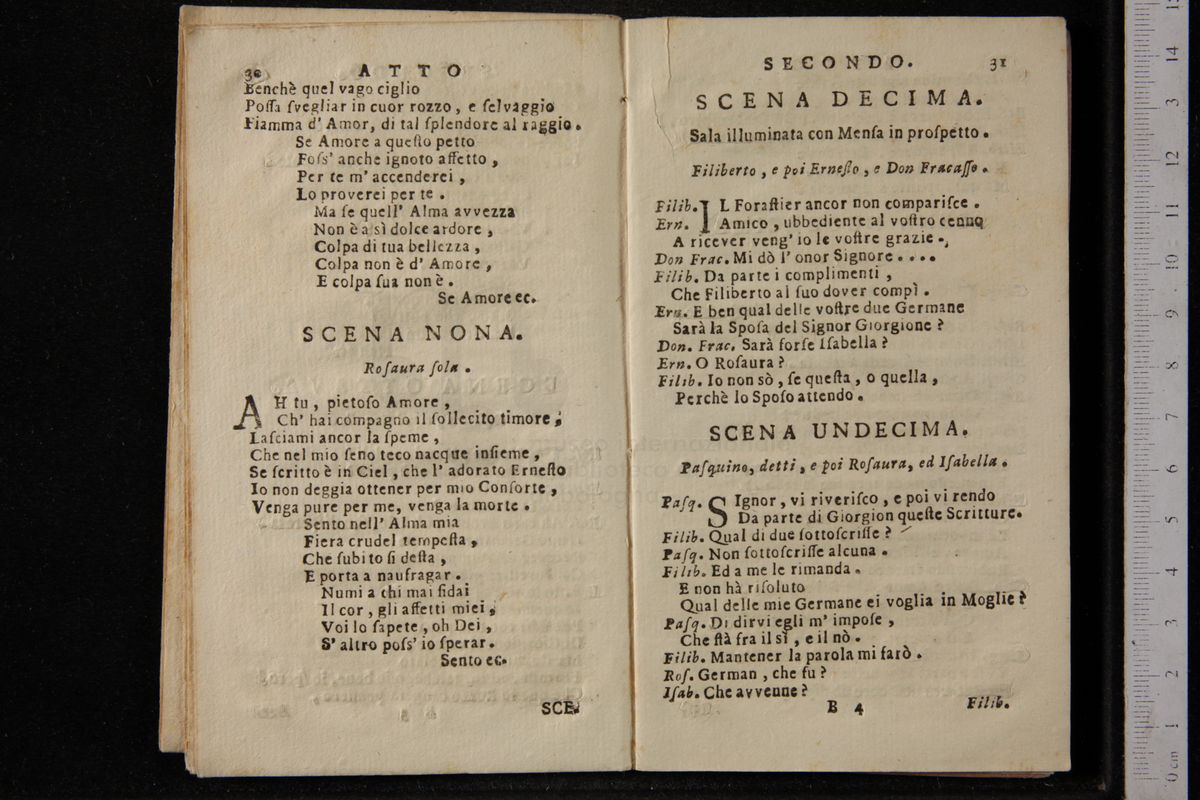 30 ATTO
Benchè quel vago ciglio
Poſſa ſvegliar in cuor rozzo, e ſelvaggio
Fiamma d' Amor, di tal ſplendore al raggio.
Se Amore a queſto petto
Foſs' anche ignoto affetto,
Per te m' accenderei,
Lo proverei per te.
Ma ſe quell' Alma avvezza
Non è a sì dolce ardore,
Colpa di tua bellezza,
Colpa non è d' Amore,
E colpa ſua non è.
Se Amore ec.
SCENA NONA.
Roſaura ſola.
AH tu, pietoſo Amore,
Ch' hai compagno il ſollecito timore;
Laſciami ancor la ſpeme,
Che nel mio ſeno teco nacque inſieme,
Se ſcritto è in Ciel, che l' adorato Erneſto
Io non deggia ottener per mio Conſorte,
Venga pure per me, venga la morte.
Sento nell' Alma mia
Fiera crudel tempeſta,
Che ſubito ſi deſta,
E porta a naufragar.
Numi a chi mai fidai
Il cor, gli affetti miei;
Voi lo ſapete, oh Dei,
S' altro poſs' io ſperar.
Sento ec.
SCE-
SECONDO. 31
SCENA DECIMA.
Sala illuminata con Menſa in proſpetto.
Filiberto, e poi Erneſto, e Don Fracaſſo.
Filib. IL Foraſtier ancor non compariſce.
Ern. Amico, ubbediente al voſtro cenno
A ricever veng' io le voſtre grazie.
Don Frac. Mi dò l' onor Signore....
Filib. Da parte i complimenti,
Che Filiberto al ſuo dover compì.
Ern. E ben qual delle voſtre due Germane
Sarà la Spoſa del Signor Giorgione?
Don. Frac. Sarà forſe Iſabella?
Ern. O Roſaura?
Filib. Io non sò, ſe queſta, o quella,
Perchè lo Spoſo attendo.
SCENA UNDECIMA.
Paſquino, detti, e poi Roſaura, ed Iſabella.
Paſq. SIgnor, vi riveriſco, e poi vi rendo
Da parte di Giorgion queſte Scritture.
Filib. Qual di due ſottoſcriſſe?
Paſq. Non ſottoſcriſſe alcuna.
Filib. Ed a me le rimanda.
E non hà riſoluto
Qual delle mie Germane ei voglia in Moglie?
Paſq. Di dirvi egli m' impoſe,
Che ſtà fra il sì, e il nò.
Filib. Mantener la parola mi farò.
Roſ. German, che fu?
Iſab. Che avvenne?
B 4 Filib.
museo interna
biblioteca
bologna
0 cm 1 2 3 4 5 6 7 8 9 10 11 12 3 14 15